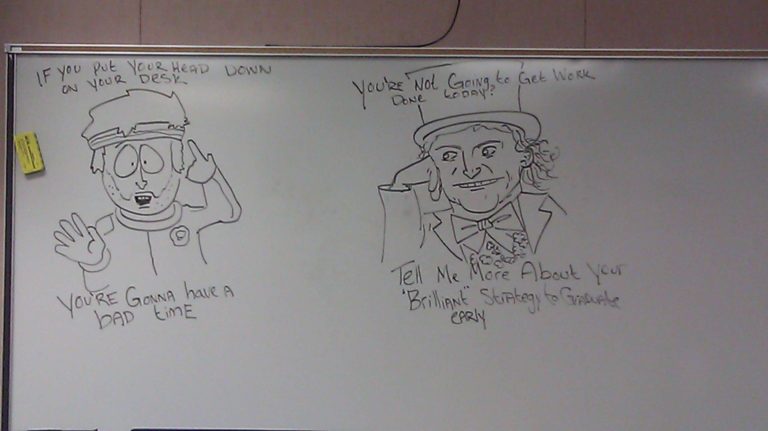 IF YOU PUT YOUR HEAD DOWN
ON YOUR DESK
YOU'RE GONNA HAVE A
BAD TIME
YOU'RE NOT GOING to GET WORK
DONE TODAY?
Tell Me More About Your
"Brilliant" Strategy to Graduate
early